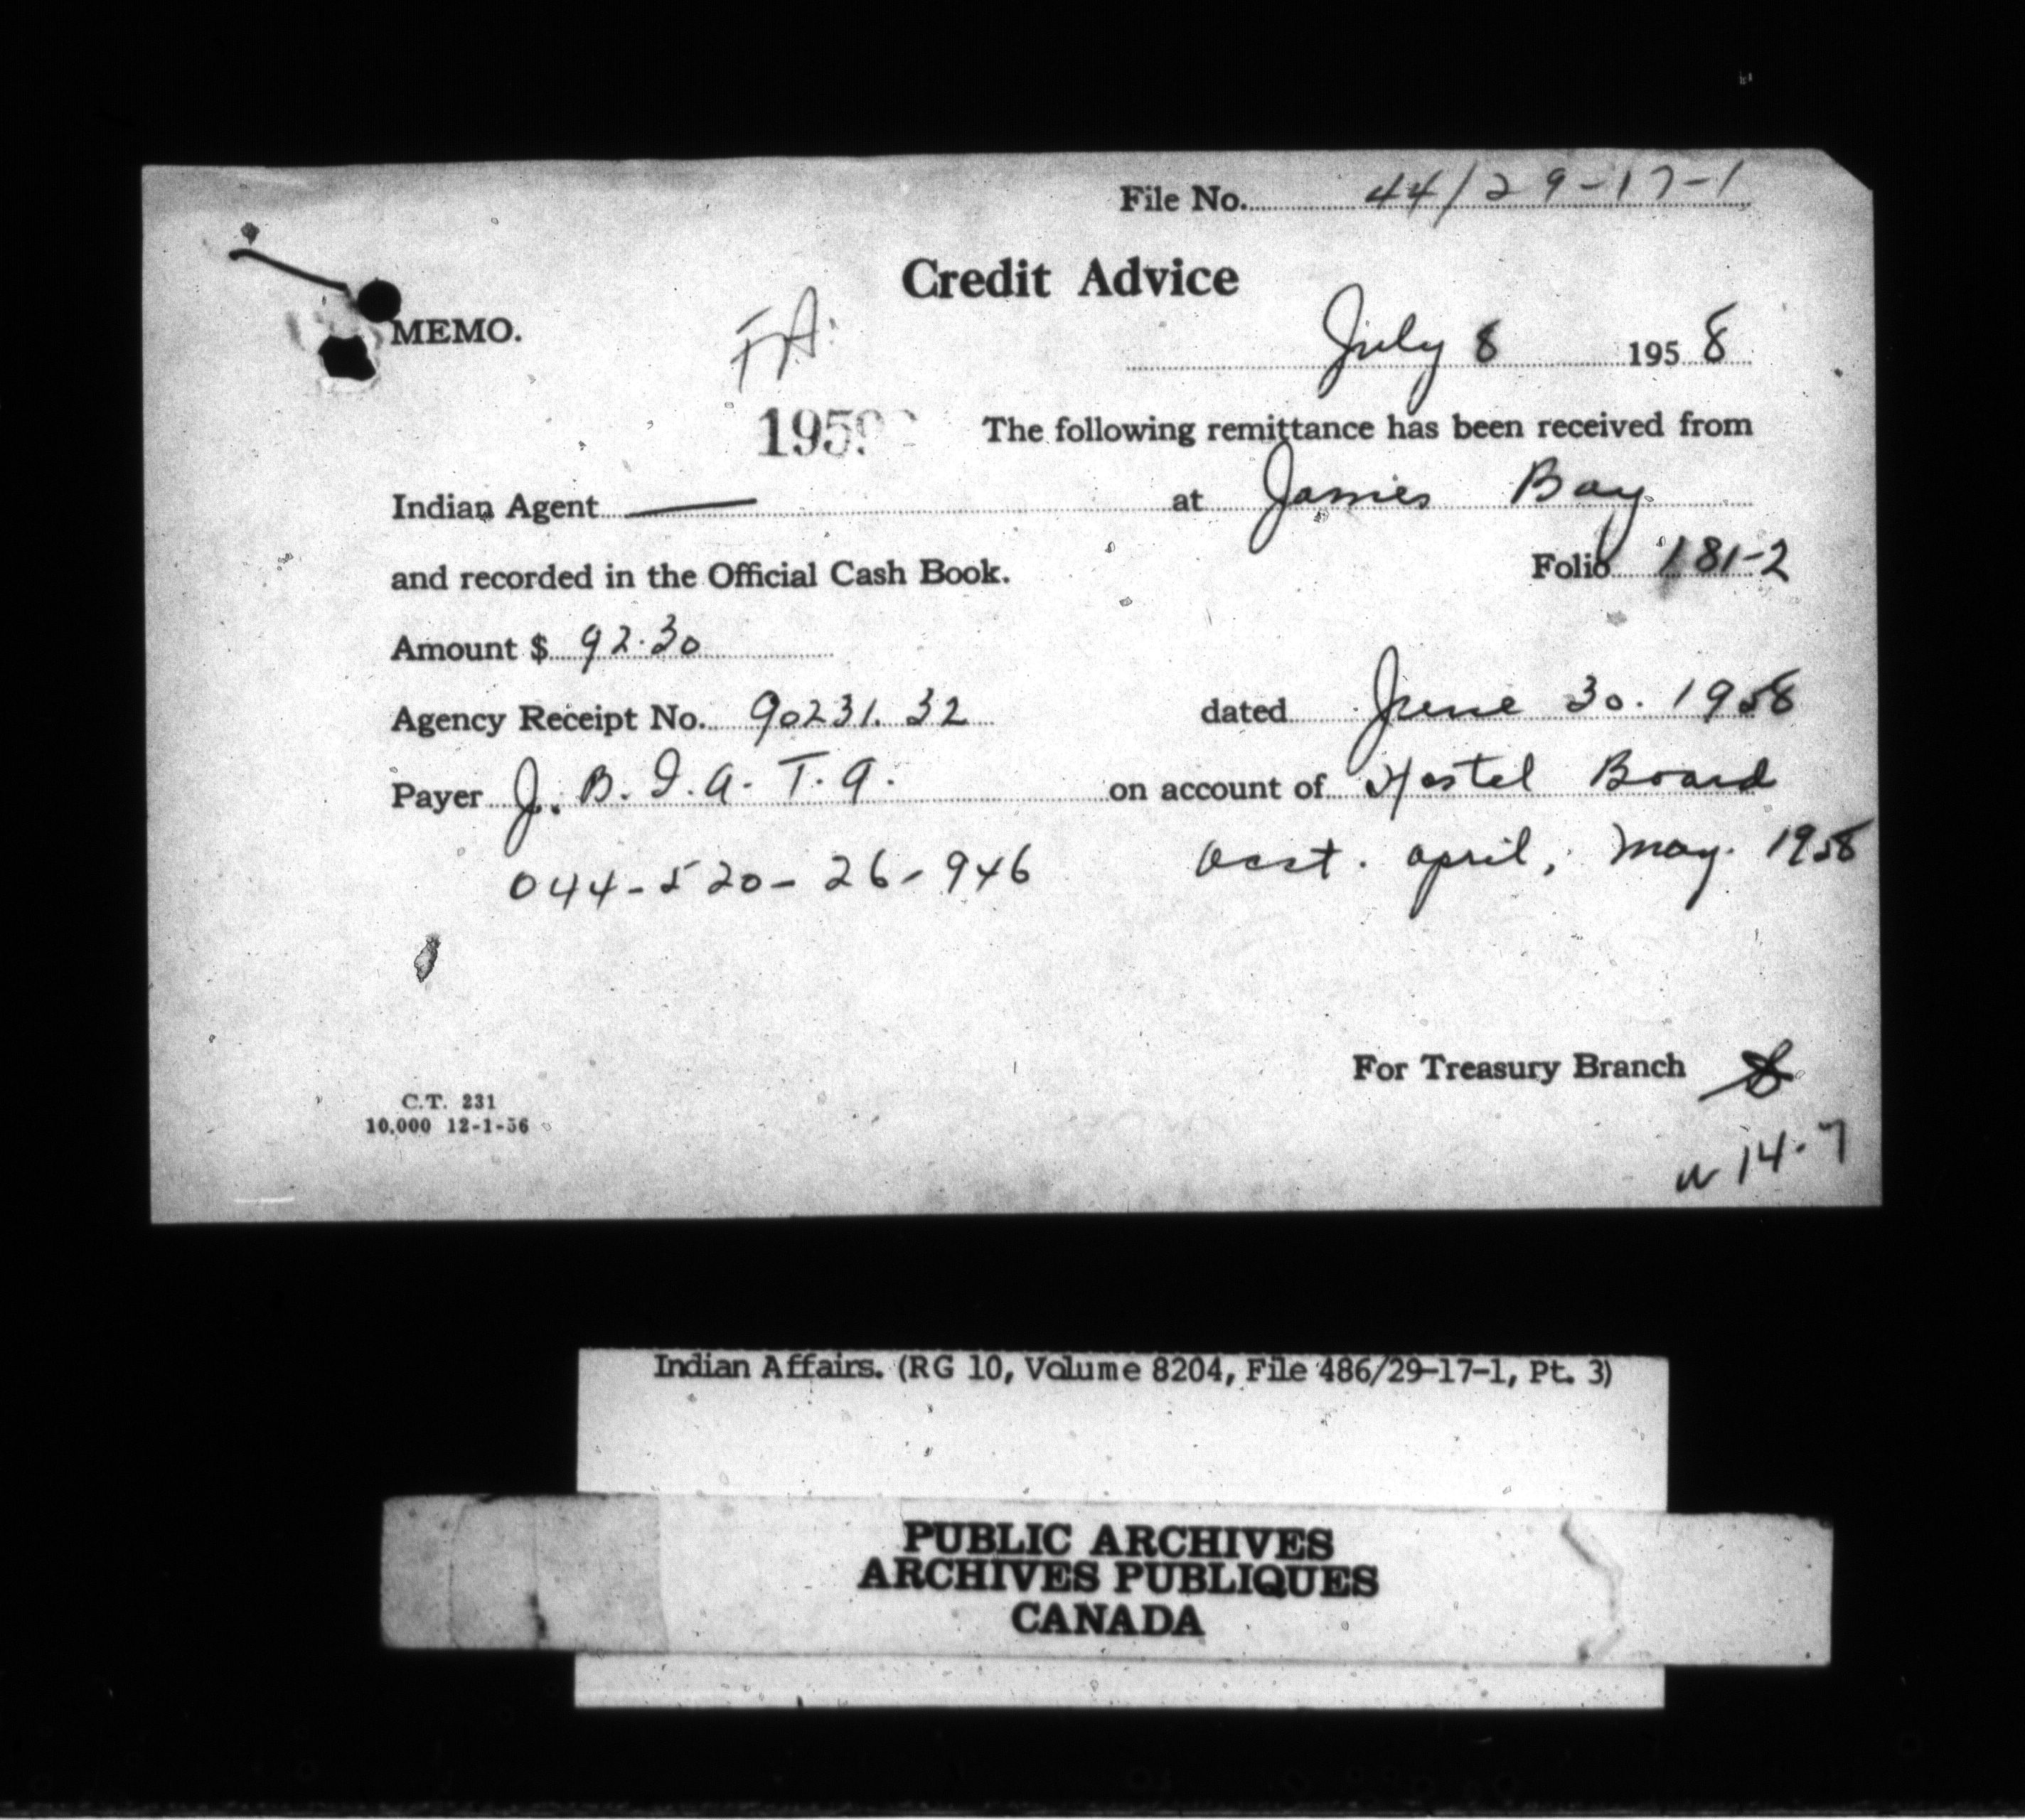 File No. 44/29-17-1
Credit Advice
MEMO.
F.A.
July 8 1958
1959
The following remittance has been received from
Indian Agent — at James Bay
and recorded in the Official Cash Book. Folio 181-2
Amount $ 92.30
Agency Receipt No. 90231.32 dated June 30. 1958
Payer J. B. I. A. T. A. on account of Hostel Board
044-520-26-946 april, May. 1958
For Treasury Branch
C.T. 231
10,000 12-1-56
14-7
Indian Affairs. (RG 10, Volume 8204, File 486/29-17-1, Pt. 3)
PUBLIC ARCHIVES
ARCHIVES PUBLIQUES
CANADA